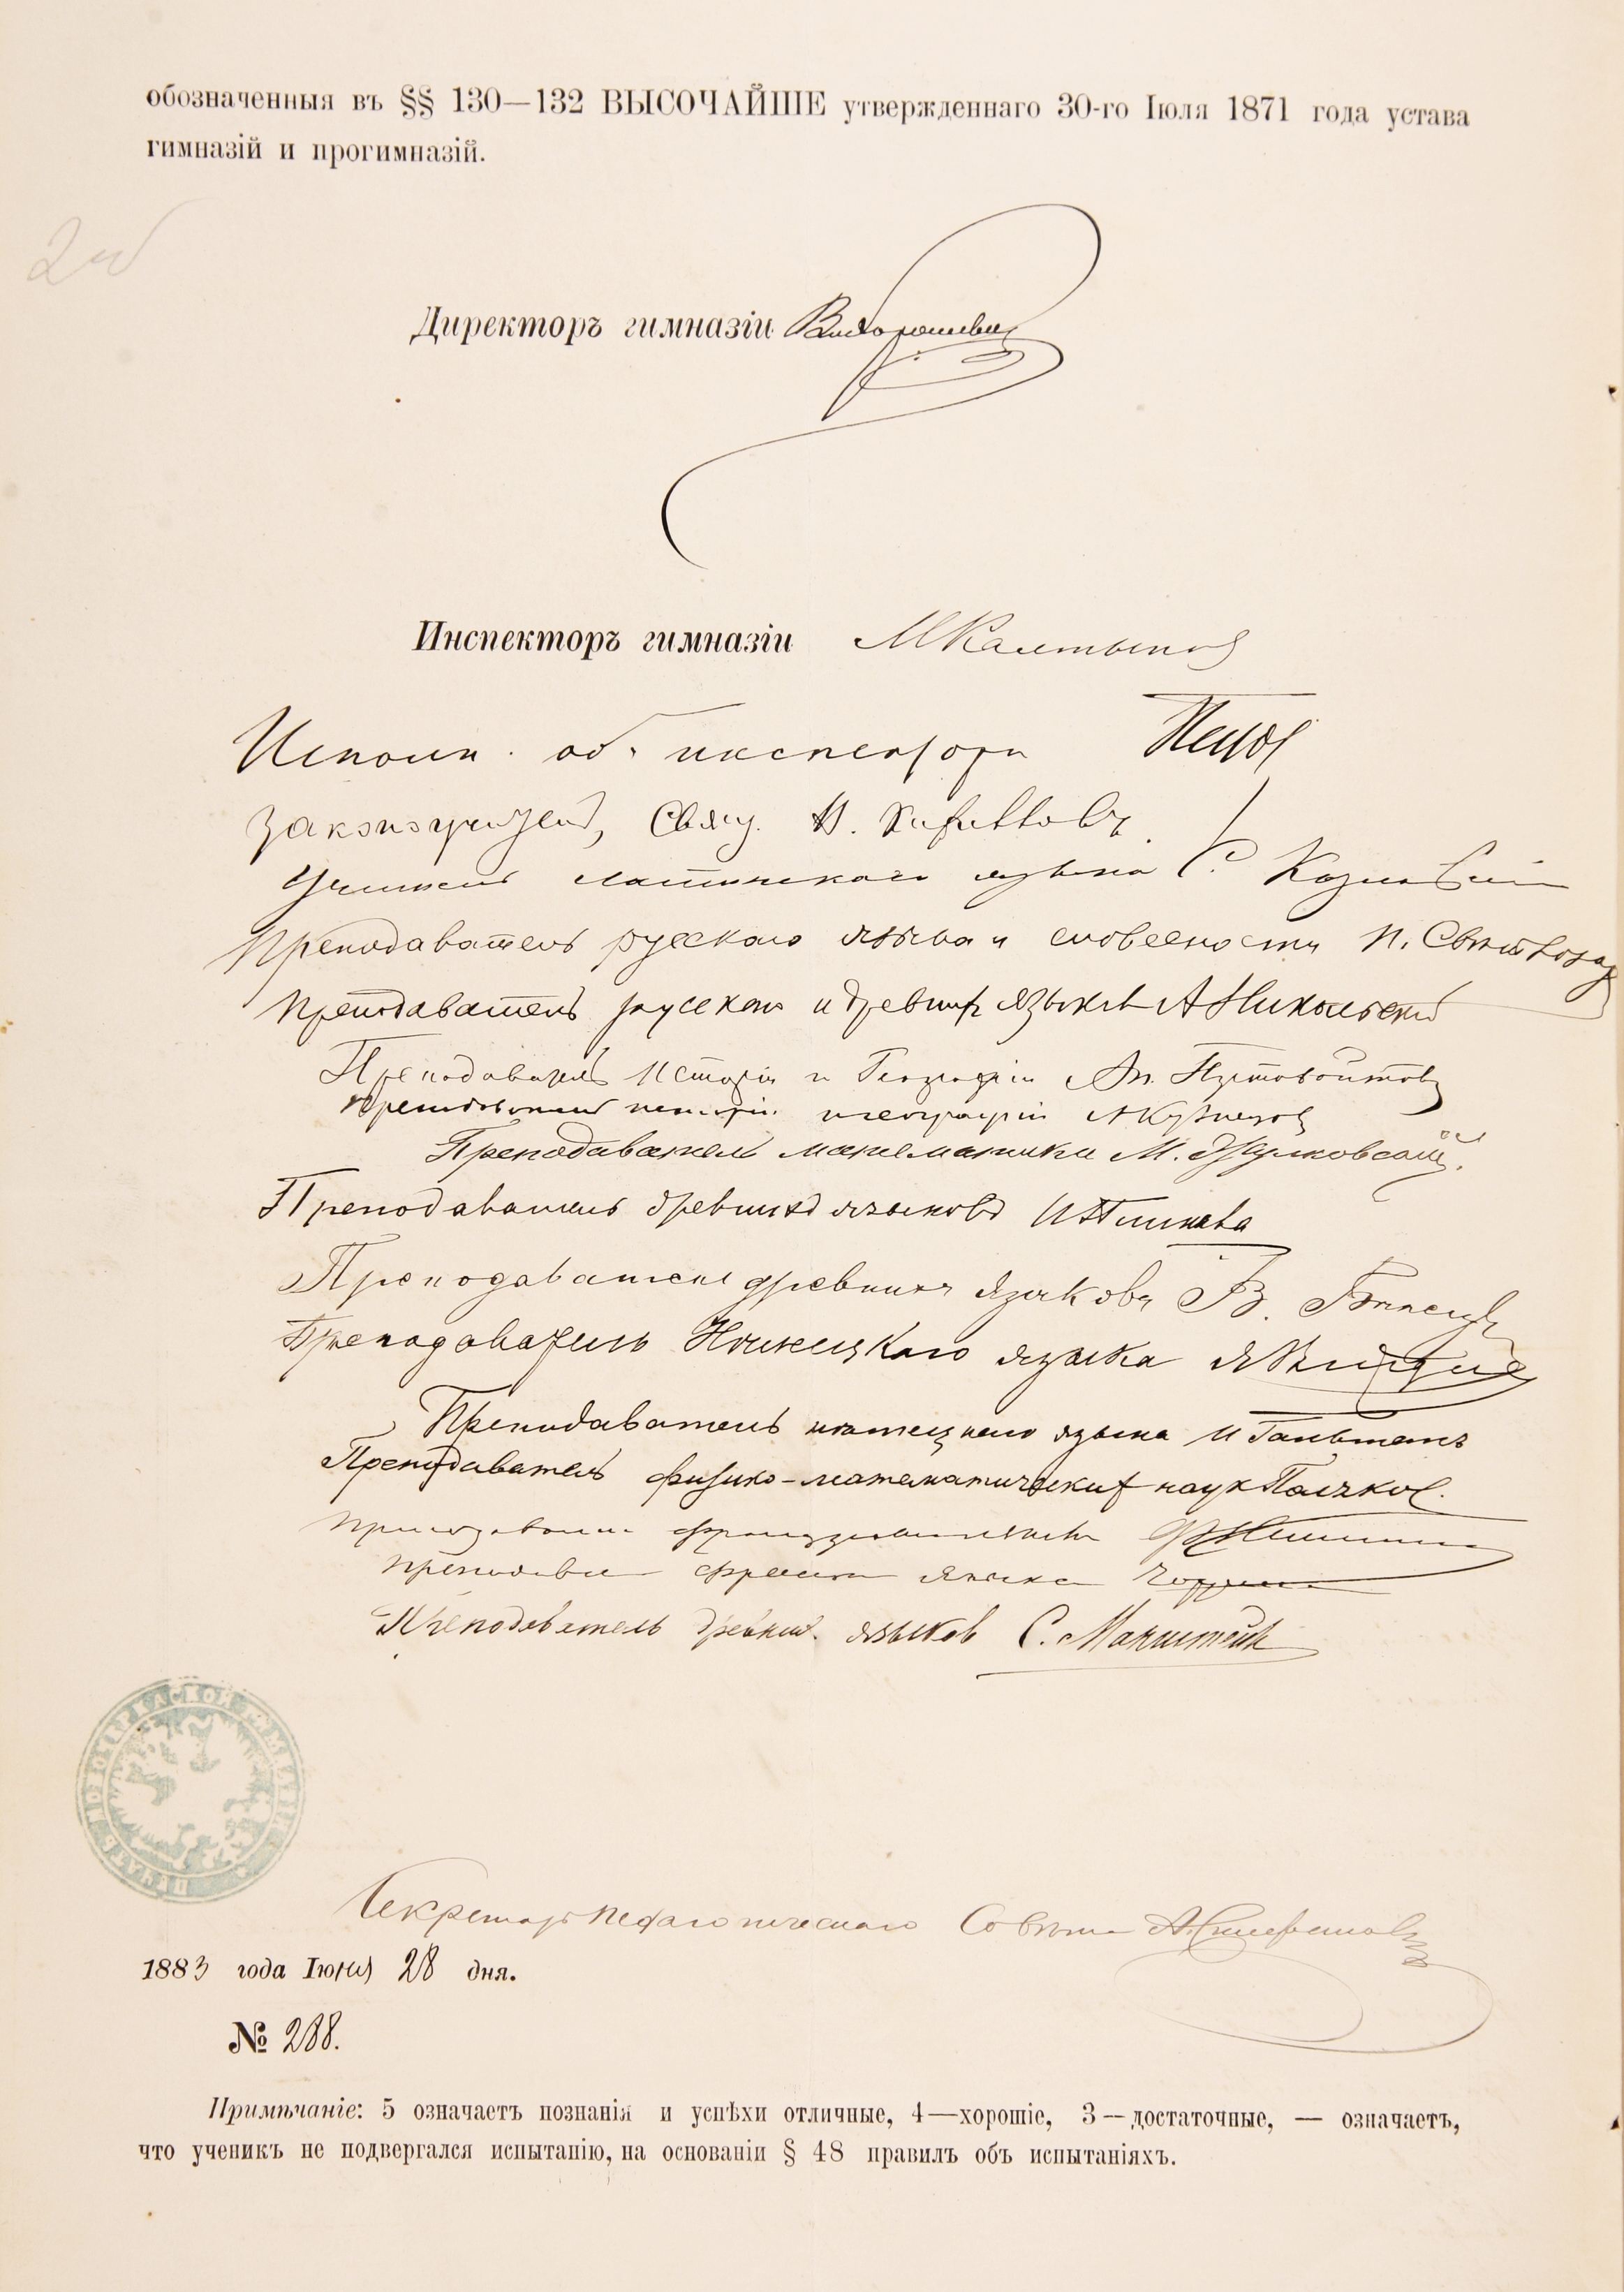 обозначенныя въ §§ 130—132 ВЫСОЧАЙШЕ утвержденнаго 30-го Іюля 1871 года устава
гимназій и прогимназій.
Директоръ гимназіи
Инспекторъ гимназіи М
Исполн. об. инспектора
Законоучитель, Свящ.
Учитель латинскаго языка С. Козловскій
Преподаватель русскаго языка и словесности П.
Преподаватель русскаго и древнихъ языковъ А Никольскій
Преподаватель Исторіи и Географіи Ап. Пустовойтовъ
Преподаватель исторіи и географіи А Кузнецовъ
Преподаватель математики М.
Преподаватель древнихъ языковъ И
Преподаватель древнихъ языковъ В.
Преподаватель Нѣмецкаго языка
Преподаватель нѣмецкаго языка И
Преподаватель физико-математическихъ наукъ
Преподаватель французскаго языка
Преподаватель франц. языка
Преподаватель древних. языков С. Манштейн
ПЕЧАТЬ НОВОЧЕРКАСКОЙ ГИМНАЗІИ
Секретарь Педагогическаго Совѣта
1883 года Іюня 28 дня.
№ 288.
Примѣчаніе: 5 означаетъ познанія и успѣхи отличные, 4—хорошіе, 3—достаточные, — означаетъ,
что ученикъ не подвергался испытанію, на основаніи § 48 правилъ объ испытаніяхъ.